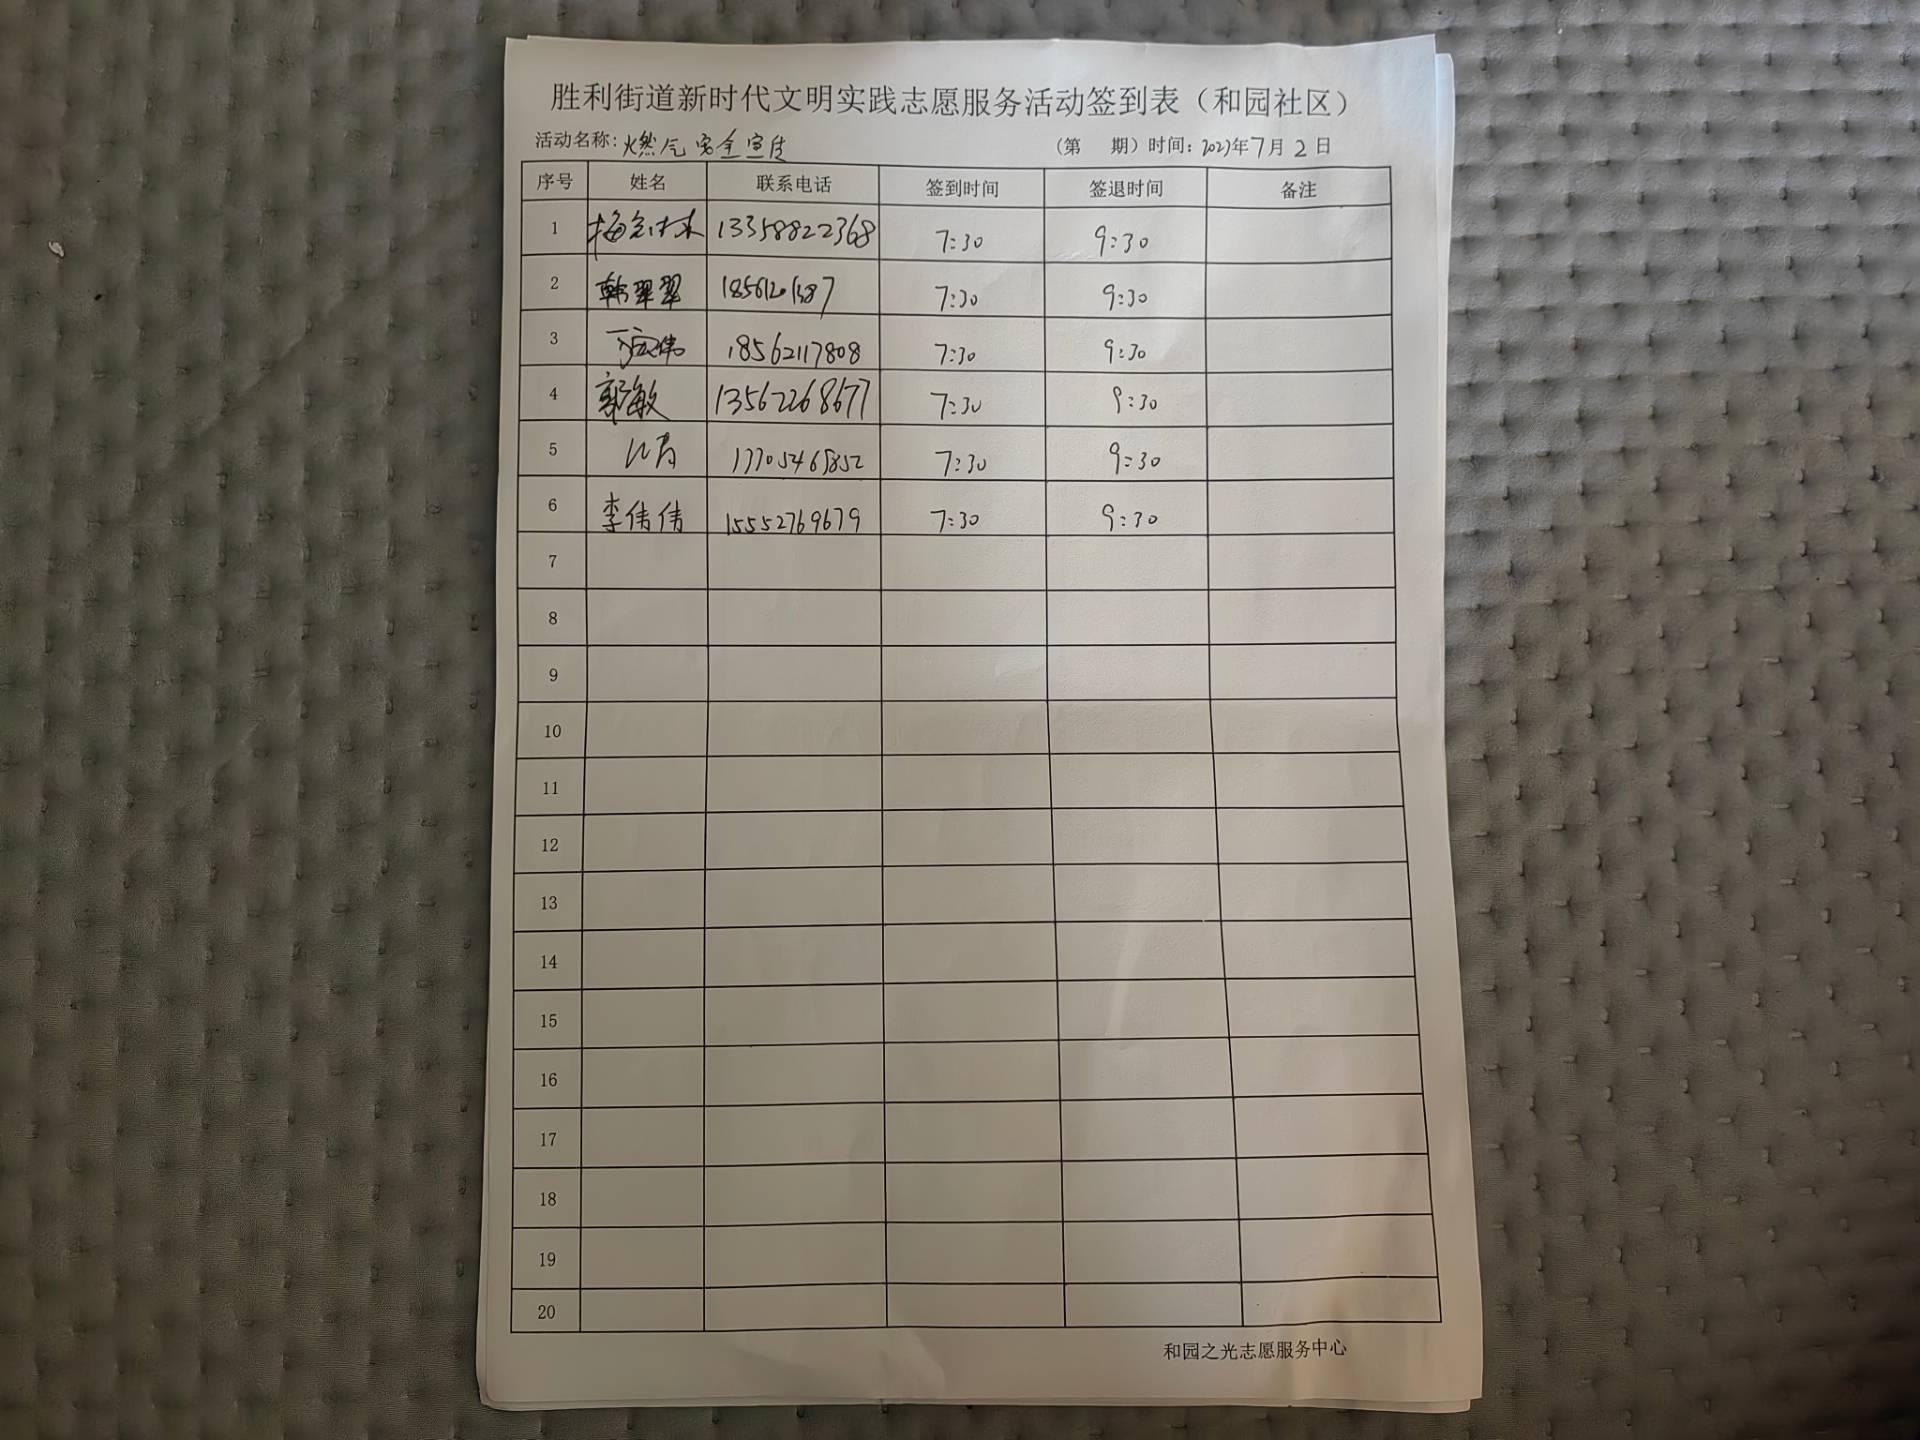 胜利街道新时代文明实践志愿服务活动签到表（和园社区）
活动名称：燃气安全宣传 （第 期）时间：2023年7月2日
序号 姓名 联系电话 签到时间 签退时间 备注
1 13358822368 7:30 9:30
2 韩翠翠 7:30 9:30
3 丁宏伟 18562117808 7:30 9:30
4 郭敏 13562268677 7:30 9:30
5 17705465852 7:30 9:30
6 李倩倩 15552769679 7:30 9:30
7
8
9
10
11
12
13
14
15
16
17
18
19
20
和园之光志愿服务中心